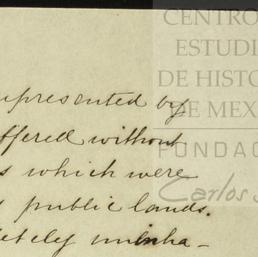 CENTRO
ESTUDI
DE HISTO
DE MEX
FUNDAC
Carlos S
epresented by
ffered without
s which were
s public lands.
letely uninha-